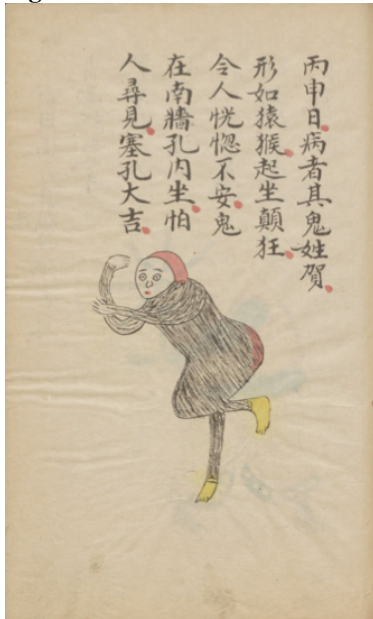 丙申日病者其鬼姓賀
形如猿猴起坐顛狂
令人恍惚不安鬼
在南牆孔內坐怕
人尋見塞孔大吉